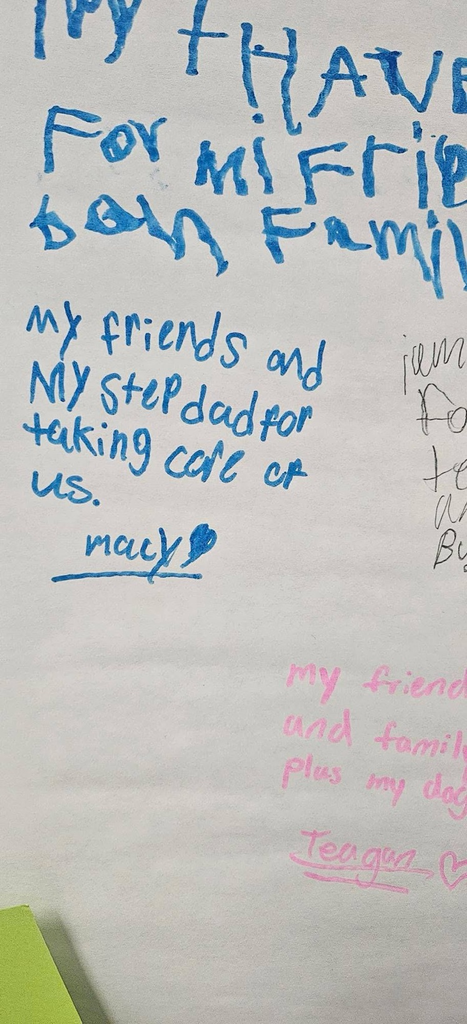 my tHAVE
For mi Frie
boin Famil
my friends and
My step dad for
taking care of
us.
macy
jam
Fo
te
an
By
my friend
and family
plus my dog
Teagan